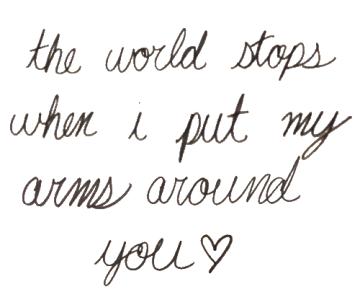 the world stops
when i put my
arms around
you♡